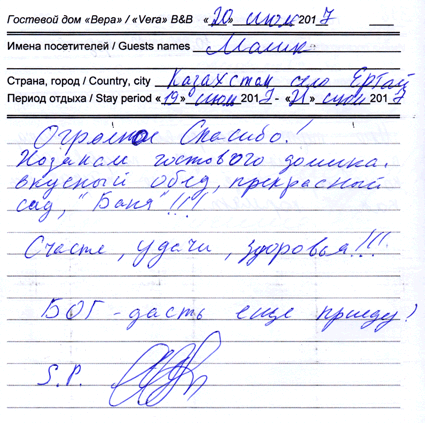 Гостевой дом «Вера» / «Vera» B&B «20» июля 2017
Имена посетителей / Guests names Малик
Страна, город / Country, city Казахстан село
Период отдыха / Stay period «19» июля 2017 - «21» июля 2017
Огромное Спасибо!
гостового домика.
вкусный обед, прекрасный
сад, "Баня"!!!!
Счастье, удачи, здоровья!!!
БОГ - дасть еще приеду!
S.P.